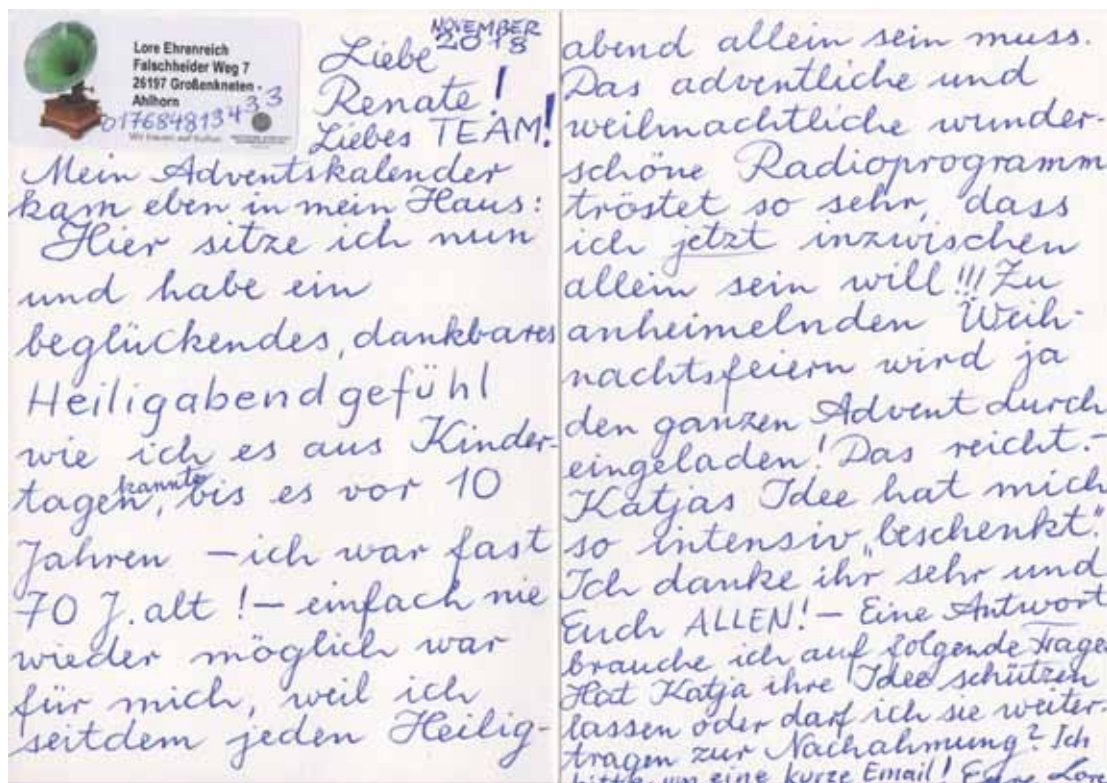 Lore Ehrenreich
Falschheider Weg 7
26197 Großenkneten -
Ahlhorn
017684813433
Wir freuen auf Kultur
NOVEMBER
2018
Liebe
Renate!
Liebes TEAM!
Mein Adventskalender
kam eben in mein Haus:
Hier sitze ich nun
und habe ein
beglückendes, dankbares
Heiligabendgefühl
wie ich es aus Kinder-
tagen kannte, bis es vor 10
Jahren – ich war fast
70 J. alt! – einfach nie
wieder möglich war
für mich, weil ich
seitdem jeden Heilig-
abend allein sein muss.
Das adventliche und
weihnachtliche wunder-
schöne Radioprogramm
tröstet so sehr, dass
ich jetzt inzwischen
allein sein will!!! Zu
anheimelnden Weih-
nachtsfeiern wird ja
den ganzen Advent durch
eingeladen! Das reicht. –
Katjas Idee hat mich
so intensiv „beschenkt".
Ich danke ihr sehr und
Euch ALLEN! – Eine Antwort
brauche ich auf folgende Frage:
Hat Katja ihre Idee schützen
lassen oder darf ich sie weiter-
tragen zur Nachahmung? Ich
bitte um eine kurze Email! Eure Lore